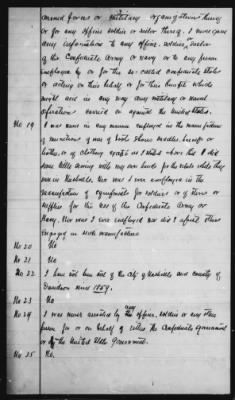 or for any officer soldier or sailor thereof. I never gave
any information to any officer, soldier, or sailor
of the Confederate Army or navy or to any person
employed by or for the so-called confederate states
or acting on their behalf or for their benefit which
might aid in any way any military or naval
operation carried on against the United States.
No 19 I was never in any manner employed in the manufacture
or
clothing except as I stated above that I did
some little sewing with my own hands for the while
was in Nashville. Nor was I ever employed in the
manufacture of equipments for soldiers or of stores or
supplies for the use of the Confederate Army or
Navy. Nor was I ever employed nor did I assist others
engaged in such manufacture
No 20 No
No 21 No
No 22 I have not been out of the city of Nashville and county of
Davidson since 1859.
No 23 No
No 24 I was never arrested by any officer, soldier or any other
person for or on behalf of either the Confederate government
or the United States Government.
No 25 No,